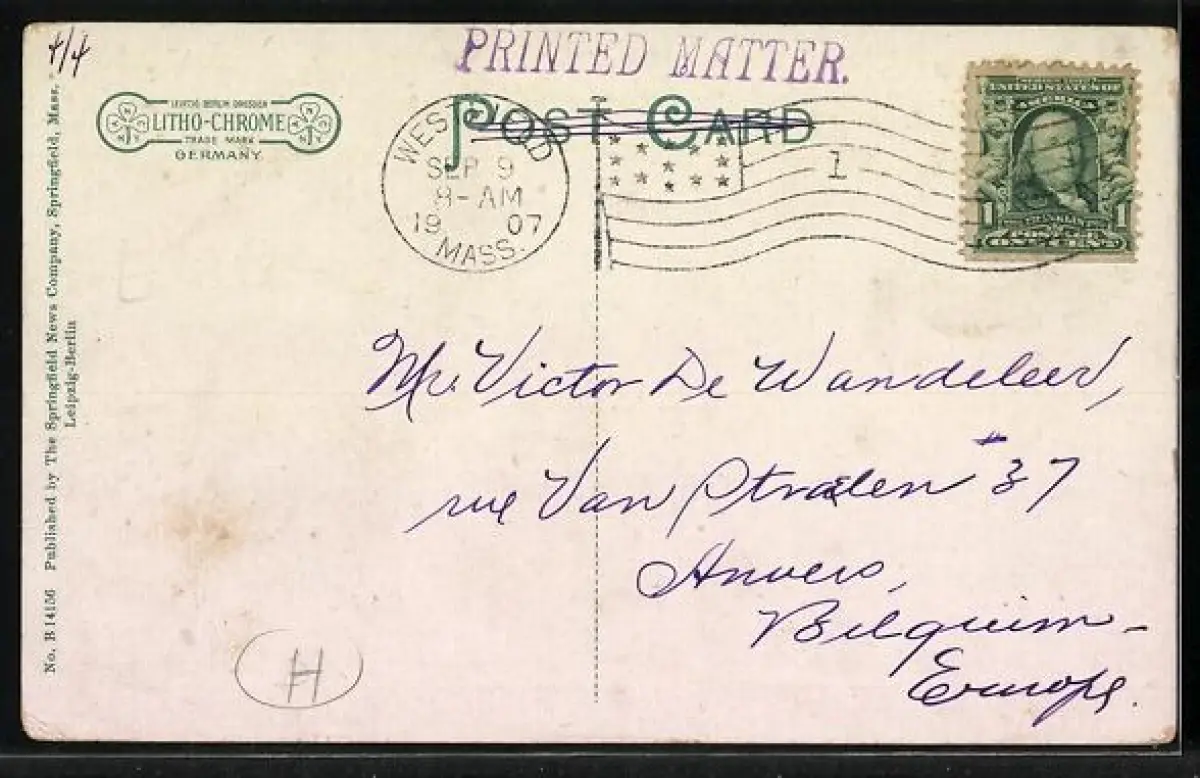 4/4
PRINTED MATTER.
POST CARD
LEIPZIG BERLIN DRESDEN
LITHO-CHROME
TRADE MARK
GERMANY.
SEP 9
8-AM
19 07
MASS.
1
UNITED STATES OF
AMERICA
1 FRANKLIN 1
ONE CENT
No. B 14156 Published by The Springfield News Company, Springfield, Mass.
Leipzig-Berlin
Mr. Victor De Wandeleer,
rue Van Straelen # 37
Anvers,
Belgium -
Europe.
H